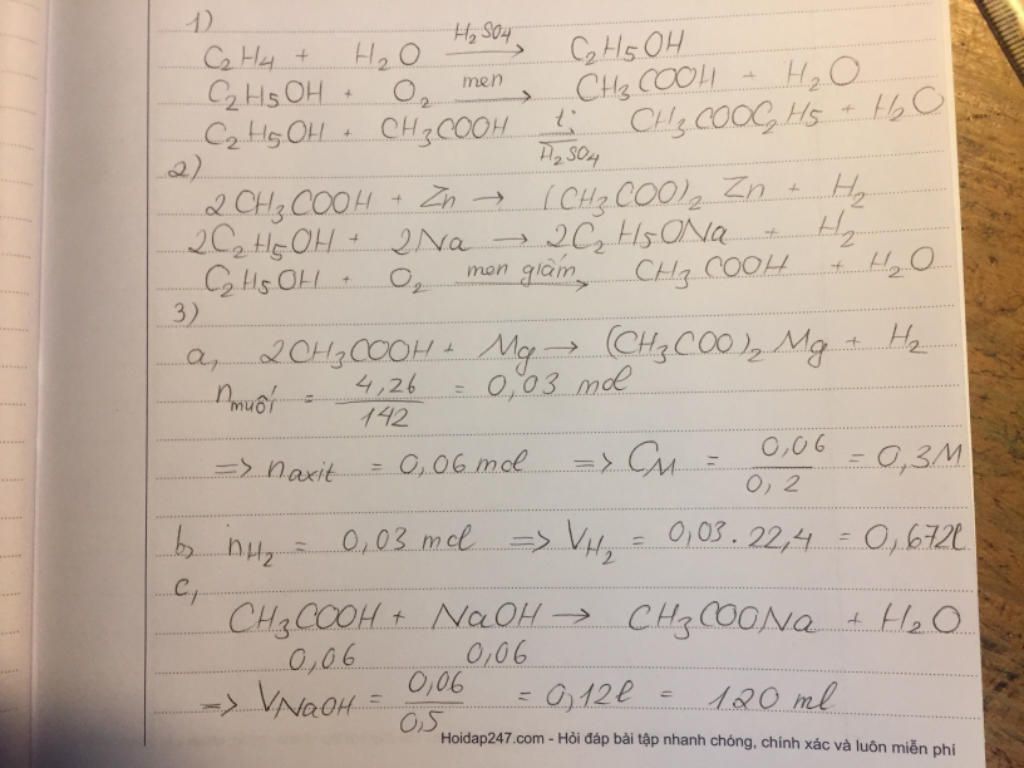 1)
C2H4 + H2O →(H2SO4) C2H5OH
C2H5OH + O2 →(men) CH3COOH + H2O
C2H5OH + CH3COOH (t° / H2SO4) CH3COOC2H5 + H2O
2)
2CH3COOH + Zn → (CH3COO)2 Zn + H2
2C2H5OH + 2Na → 2C2H5ONa + H2
C2H5OH + O2 →(men giấm) CH3COOH + H2O
3)
a, 2CH3COOH + Mg → (CH3COO)2 Mg + H2
n muối = 4,26/142 = 0,03 mol
=> n axit = 0,06 mol => CM = 0,06/0,2 = 0,3M
b, nH2 = 0,03 mol => VH2 = 0,03.22,4 = 0,672l
c,
CH3COOH + NaOH → CH3COONa + H2O
0,06 0,06
=> VNaOH = 0,06/0,5 = 0,12l = 120 ml
Hoidap247.com - Hỏi đáp bài tập nhanh chóng, chính xác và luôn miễn phí